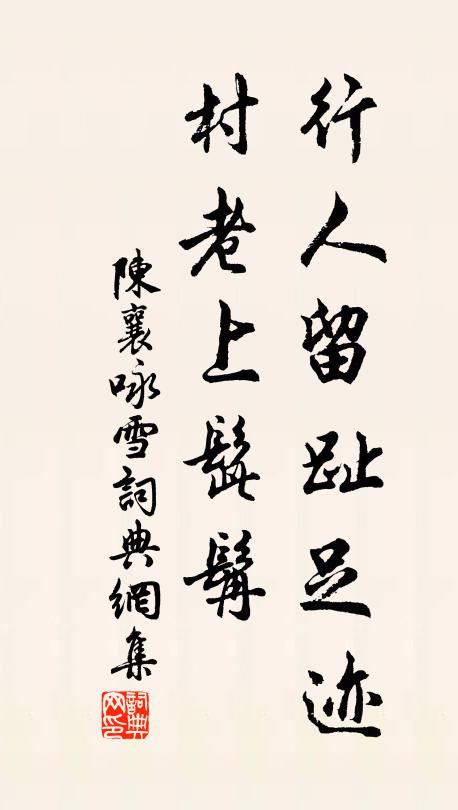 行人留趾足迹
村老上髭髯
陳襄咏雪詞典網集
詞典
网印